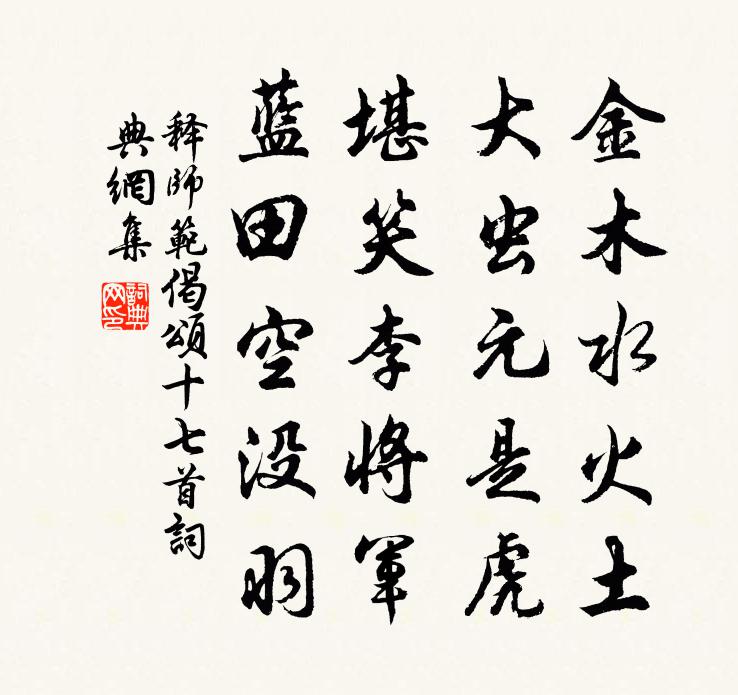 金木水火土
大虫元是虎
堪笑李將軍
藍田空没羽
释師範偈頌十七首詞
典網集
詞典
网印